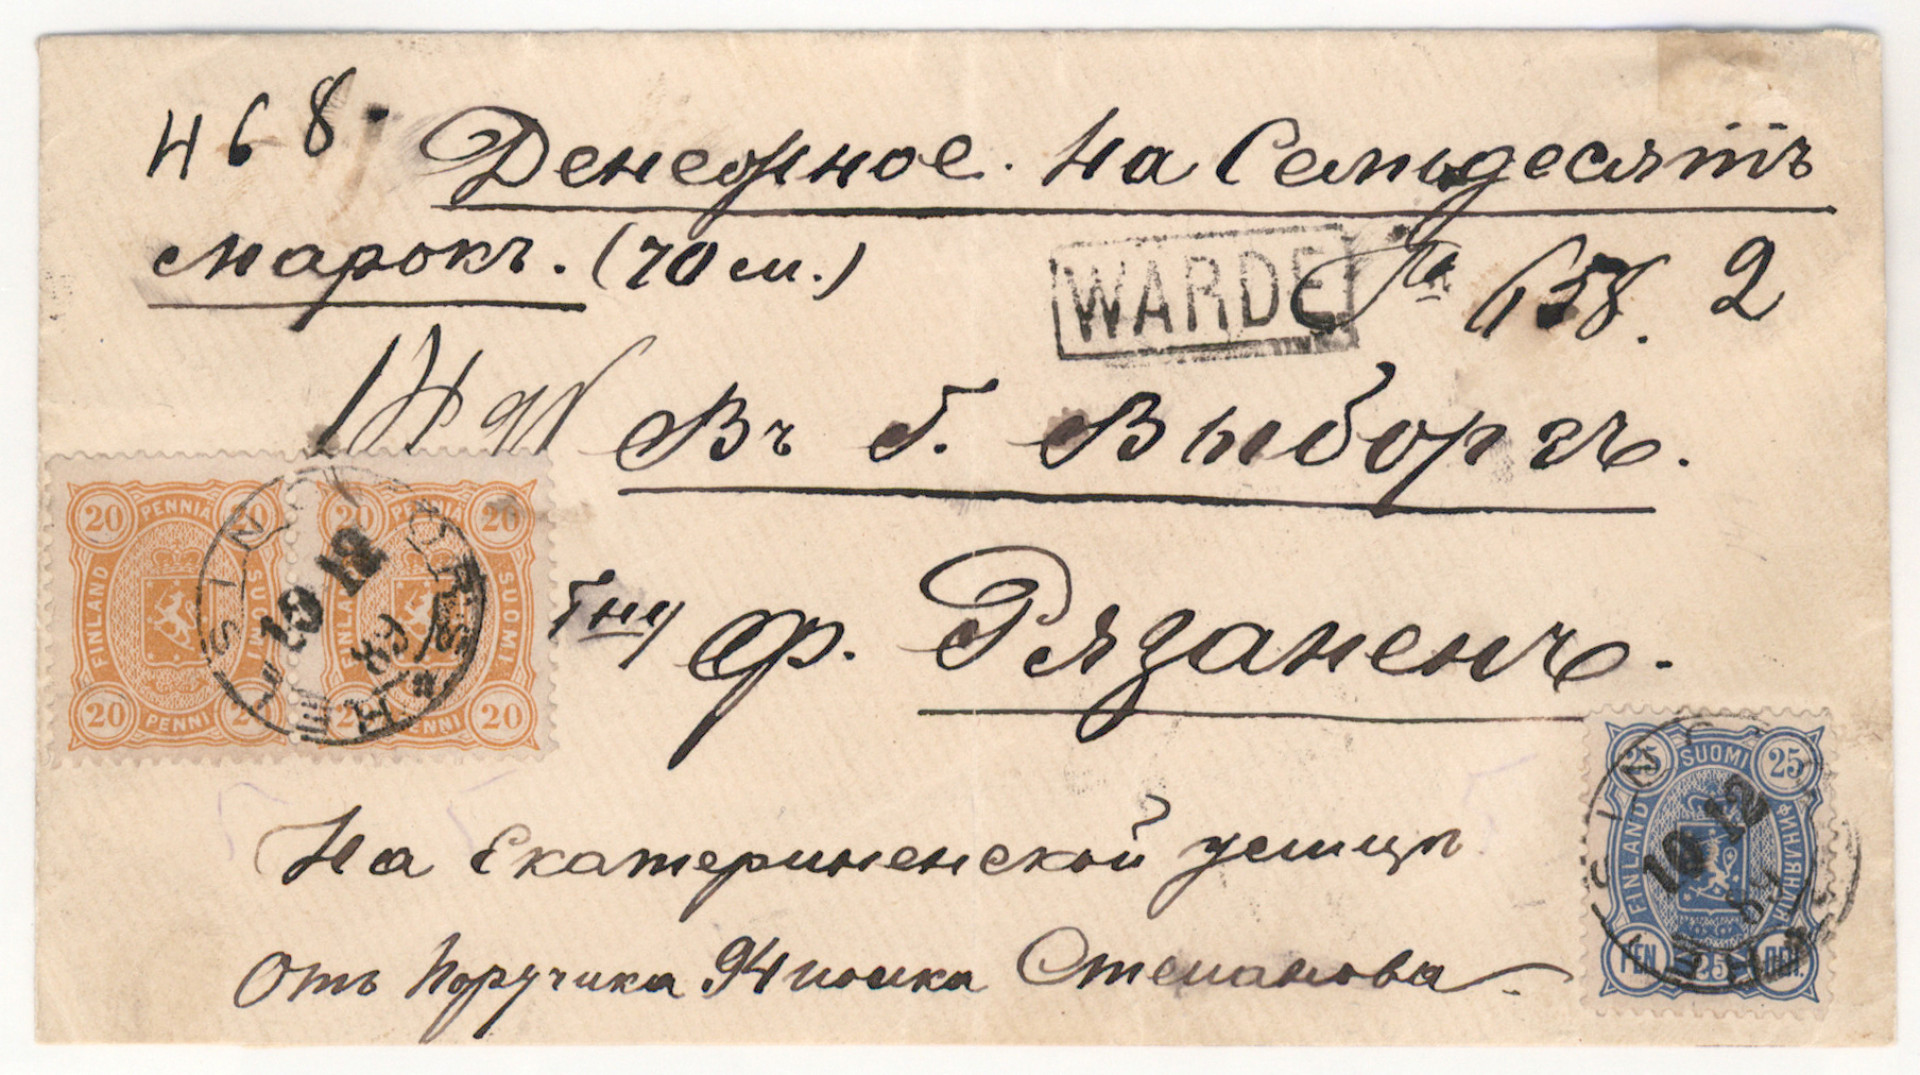 468.
Денежное. на Семьдесятъ
марокъ. (70 м.)
WARDE
658. 2
Въ г. Выборгъ.
Гну ф. Рязаненъ.
На Екатериненской улицы
Отъ Поручика 94 полка Степанова
20 PENNIÄ 20
FINLAND SUOMI
20 PENNI 20
20 PENNIÄ 20
FINLAND SUOMI
20 PENNI 20
HELSINGFORS
10 12
89
25 SUOMI 25
FINLAND ФИНЛЯНДІЯ
PEN. 25 ПЕН.
10 12
89